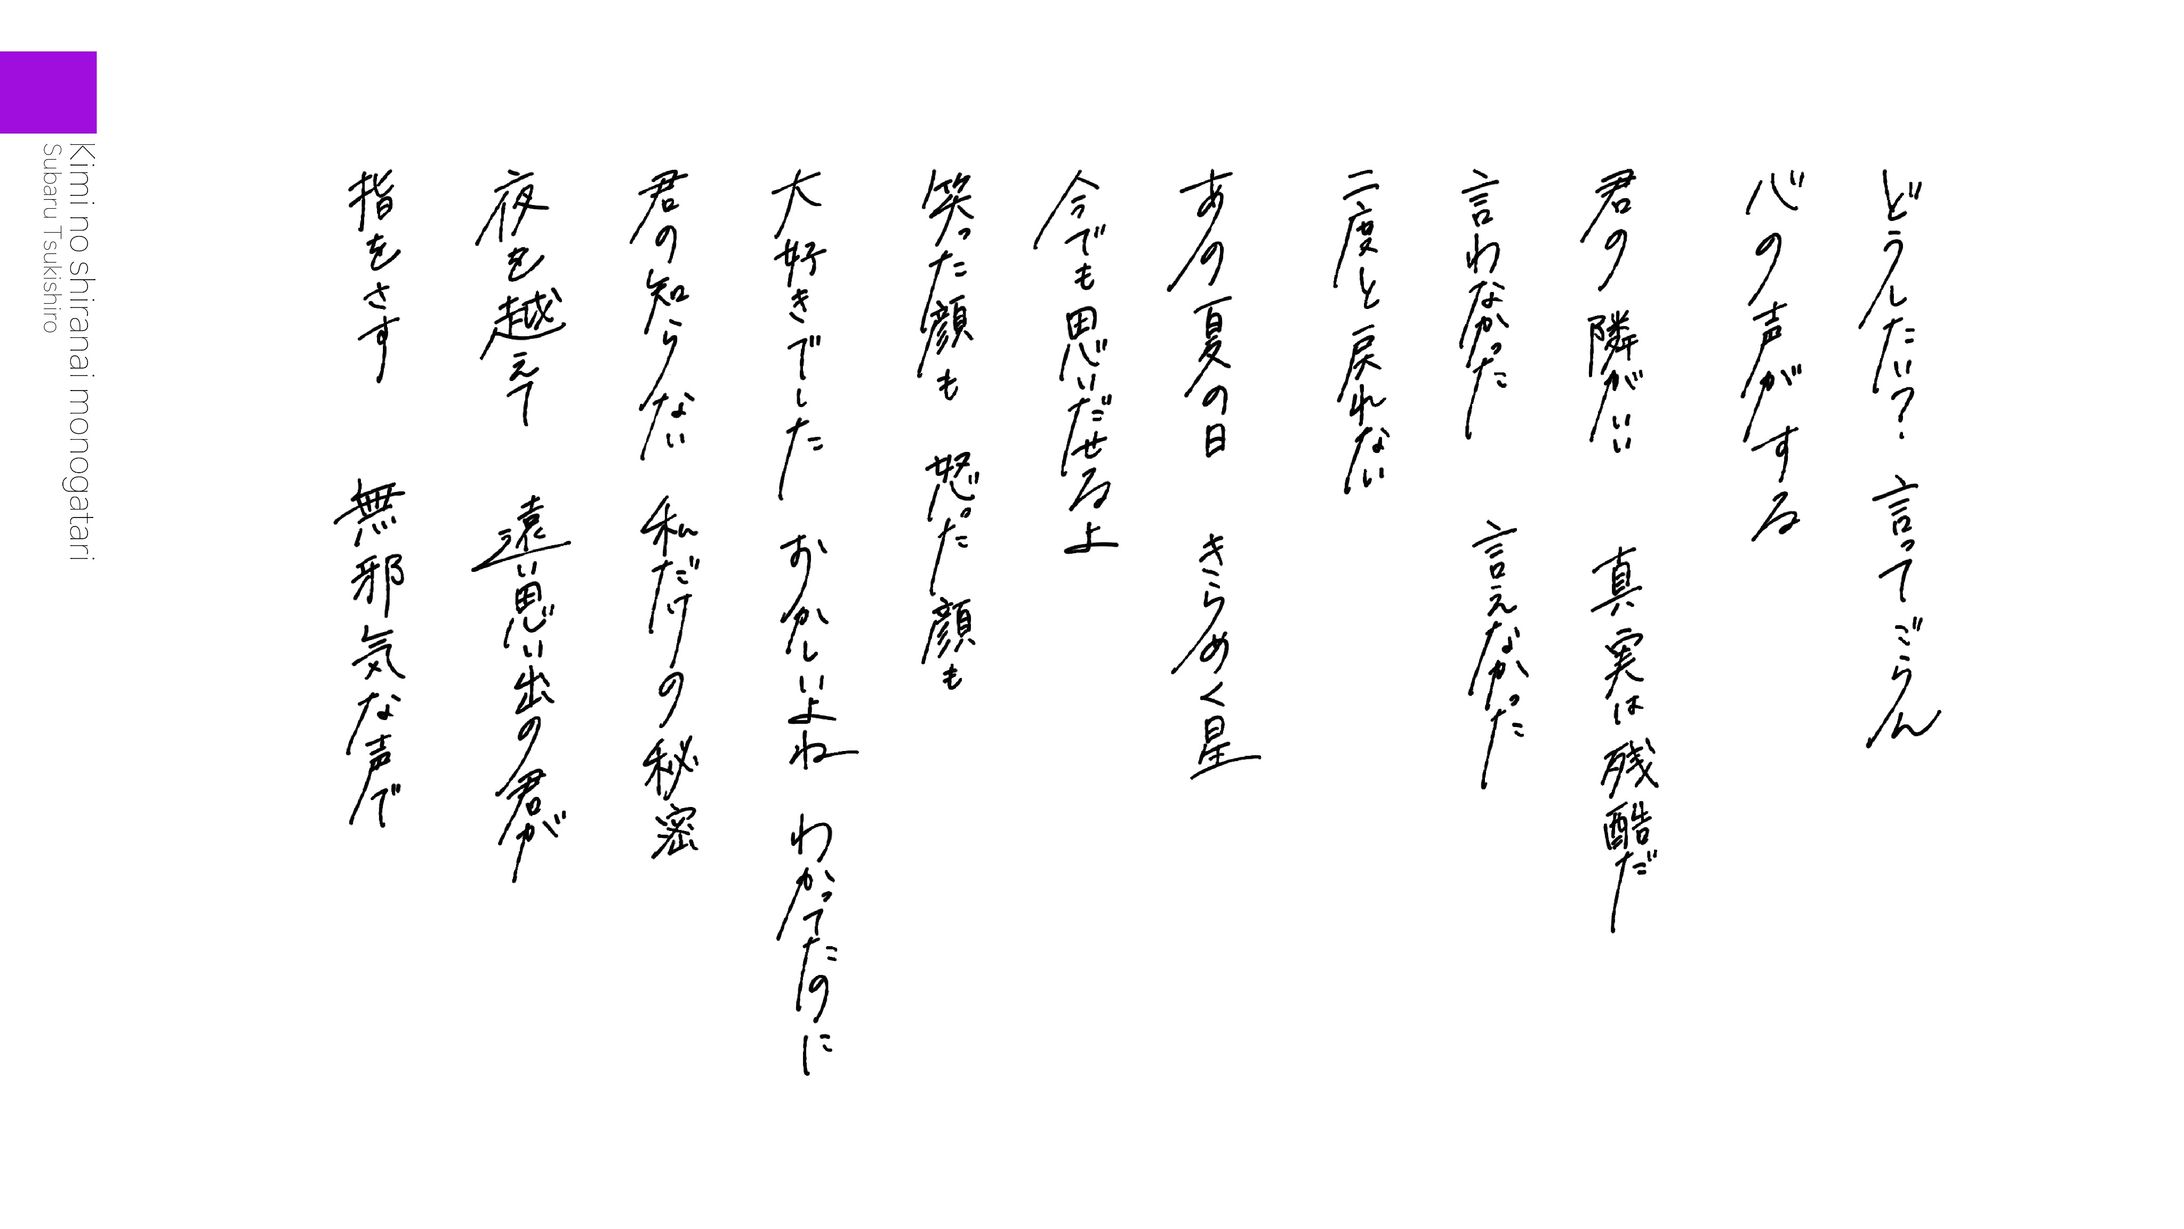 どうしたい？ 言ってごらん
心の声がする
君の隣がいい 真実は残酷だ
言わなかった 言えなかった
二度と戻れない
あの夏の日 きらめく星
今でも思いだせるよ
笑った顔も 怒った顔も
大好きでした おかしいよね わかってたのに
君の知らない 私だけの秘密
夜を越えて 遠い思い出の君が
指をさす 無邪気な声で
Kimi no shiranai monogatari
Subaru Tsukishiro